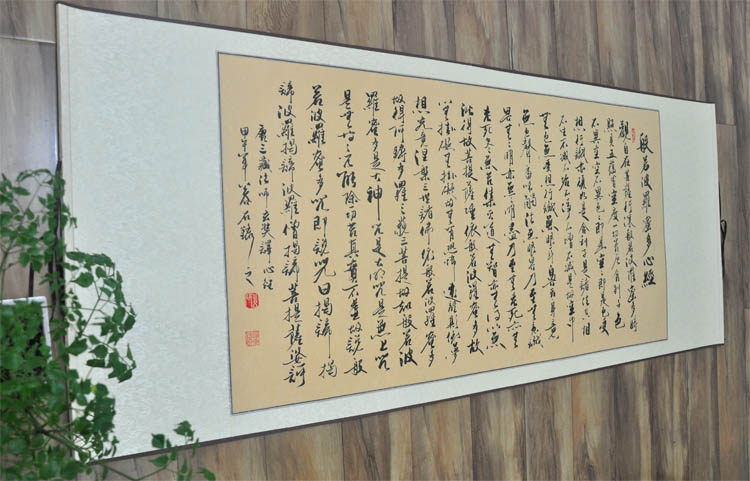 般若波羅蜜多心經
觀自在菩薩行深般若波羅蜜多時
照見五蘊皆空度一切苦厄舍利子色
不異空空不異色色即是空空即是色受
想行識亦復如是舍利子是諸法空相
不生不滅不垢不淨不增不減是故空中
無色無受想行識無眼耳鼻舌身意
無色聲香味觸法無眼界乃至無意識
界無無明亦無無明盡乃至無老死亦無
老死盡無苦集滅道無智亦無得以無所
得故菩提薩埵依般若波羅蜜多故
心無掛礙無掛礙故無有恐怖遠離顛倒夢
想究竟涅槃三世諸佛依般若波羅蜜多
故得阿耨多羅三藐三菩提故知般若波
羅蜜多是大神咒是大明咒是無上咒
是無等等咒能除一切苦真實不虛故說般
若波羅蜜多咒即說咒曰揭諦揭
諦波羅揭諦波羅僧揭諦菩提薩婆訶
唐三藏法師玄奘譯心經
甲午年